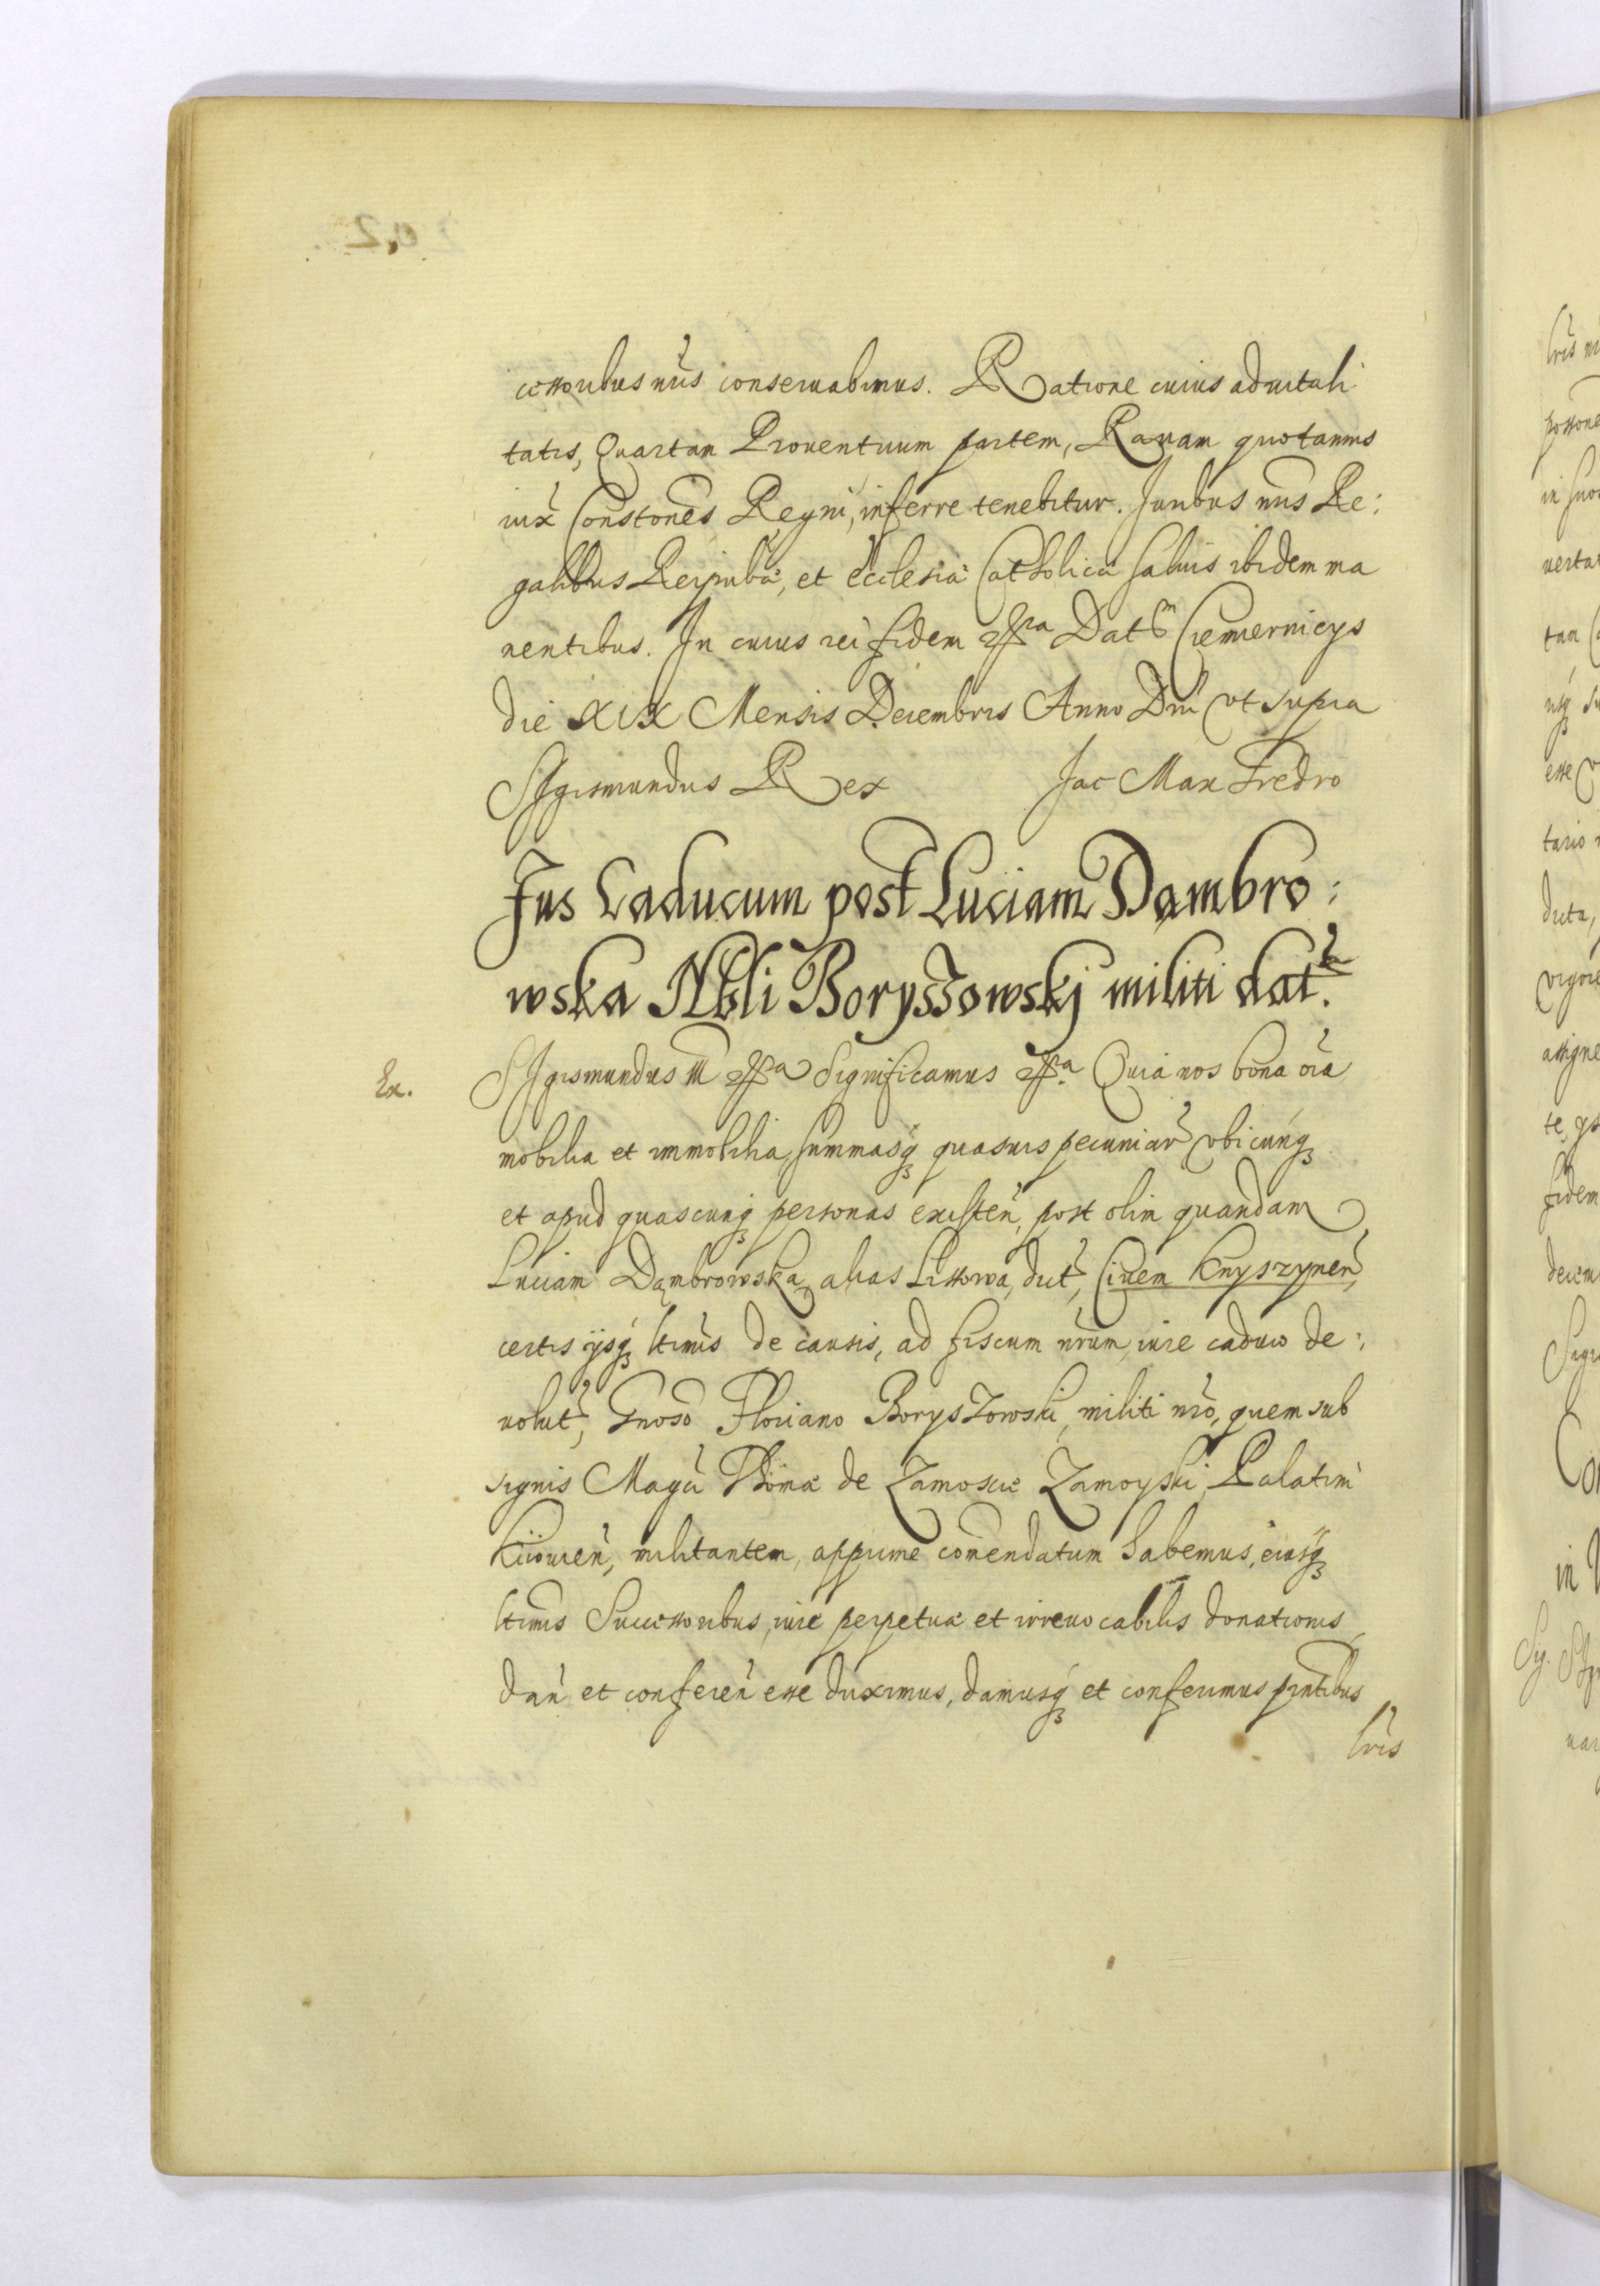 cessoribus nris conseruabimus. Ratione cuius aduitali
tatis, Quartam Prouentuum partem, Rauam quotannis
iux Constones Regni, inferre tenebitur. Juribus nris Re:
galibus Reipubcae, et Ecclesiae Catholicae saluis ibidem ma
nentibus. In cuius rei fidem Dat Ciemiernicys
die XIX Mensis Decembris Anno Dni vt supra
Sigismundus Rex Jac Max Fredro
Jus Caducum post Luciam Dambro:
wska Nbli Boryszowskj militi dat.
Ex. Sigismundus III Significamus Quia nos bona oia
mobilia et immobilia, summasq quasuis pecuniar vbicunq
et apud quascunq personas existen, post olim quandam
Luciam Dąmbrowska alias Lissowa, dict, Ciuem Knyszynen,
certis ijsq ltimis de causis, ad fiscum nrum, iure caduco de:
uolut, Gnoso Floriano Boryszowski, militi nro, quem sub
signis Magci Thomae de Zamoscie Zamoyski, Palatini
Kiiouien, militantem, apprime comendatum habemus, eiusq
ltimis Successoribus, iure perpetuae et irreuocabilis donationis
dan et conferen esse duximus, damusq et conferimus pntibus
lris